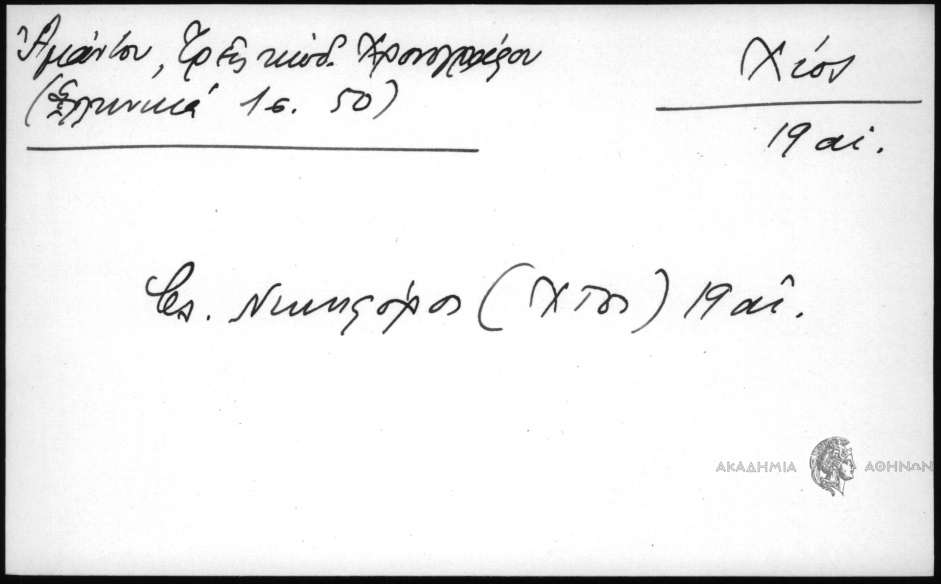 Ἀμάντου, Τρεῖς κώδ. Χρονογράφου
(Ἑλληνικά 1 σ. 50)
Χίος
19 αἰ.
Νικηφόρος (Χῖος) 19 αἰ.
ΑΚΑΔΗΜΙΑ ΑΘΗΝΩΝ